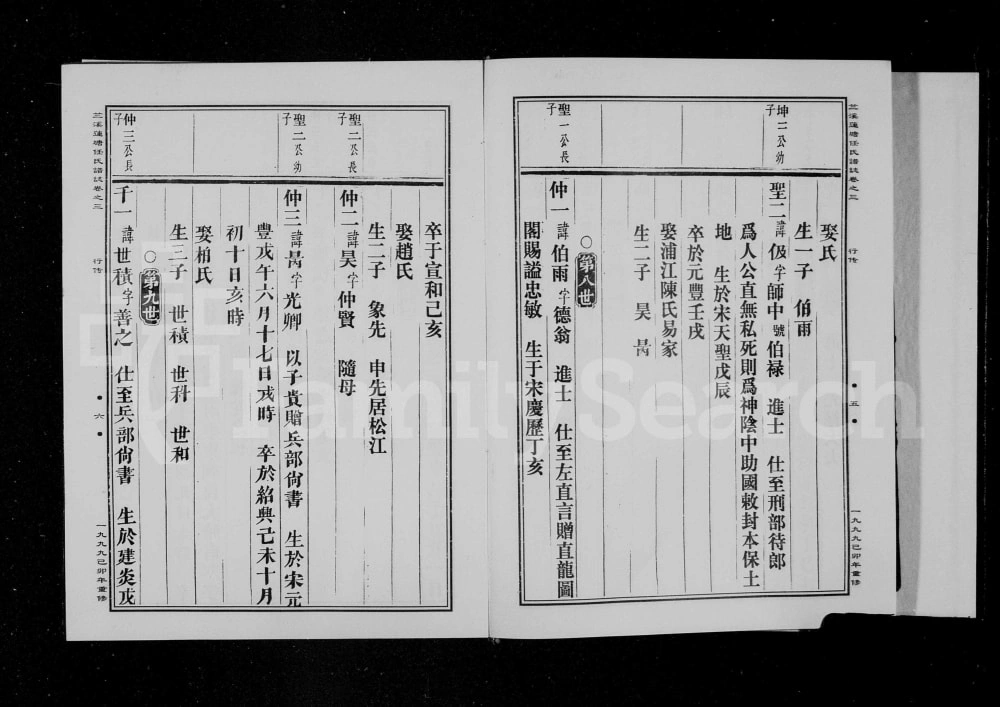 芝溪蓮塘任氏譜誌卷之三
行传
五
一九九九己卯年重修
娶氏
生一子 伯雨
坤二公幼子
聖二諱伋字師中號伯禄 進士 仕至刑部待郎
爲人公直無私死則爲神陰中助國敕封本保土
地 生於宋天聖戊辰
卒於元豐壬戌
娶浦江陳氏易家
生二子 昊 昺
第八世
聖一公長子
仲一諱伯雨字德翁 進士 仕至左直言贈直龍圖
閣賜謚忠敏 生于宋慶歷丁亥
卒于宣和己亥
娶趙氏
生二子 象先 申先居松江
聖二公長子
仲二諱昊字仲賢 隨母
聖二公幼子
仲三諱昺字光卿 以子貴贈兵部尚書 生於宋元
豊戊午六月十七日戌時 卒於紹興己未十月
初十日亥時
娶柏氏
生三子 世積 世科 世和
第九世
仲三公長子
千一諱世積字善之 仕至兵部尚書 生於建炎戊
芝溪蓮塘任氏譜誌卷之三
行传
六
一九九九己卯年重修
FamilySearch